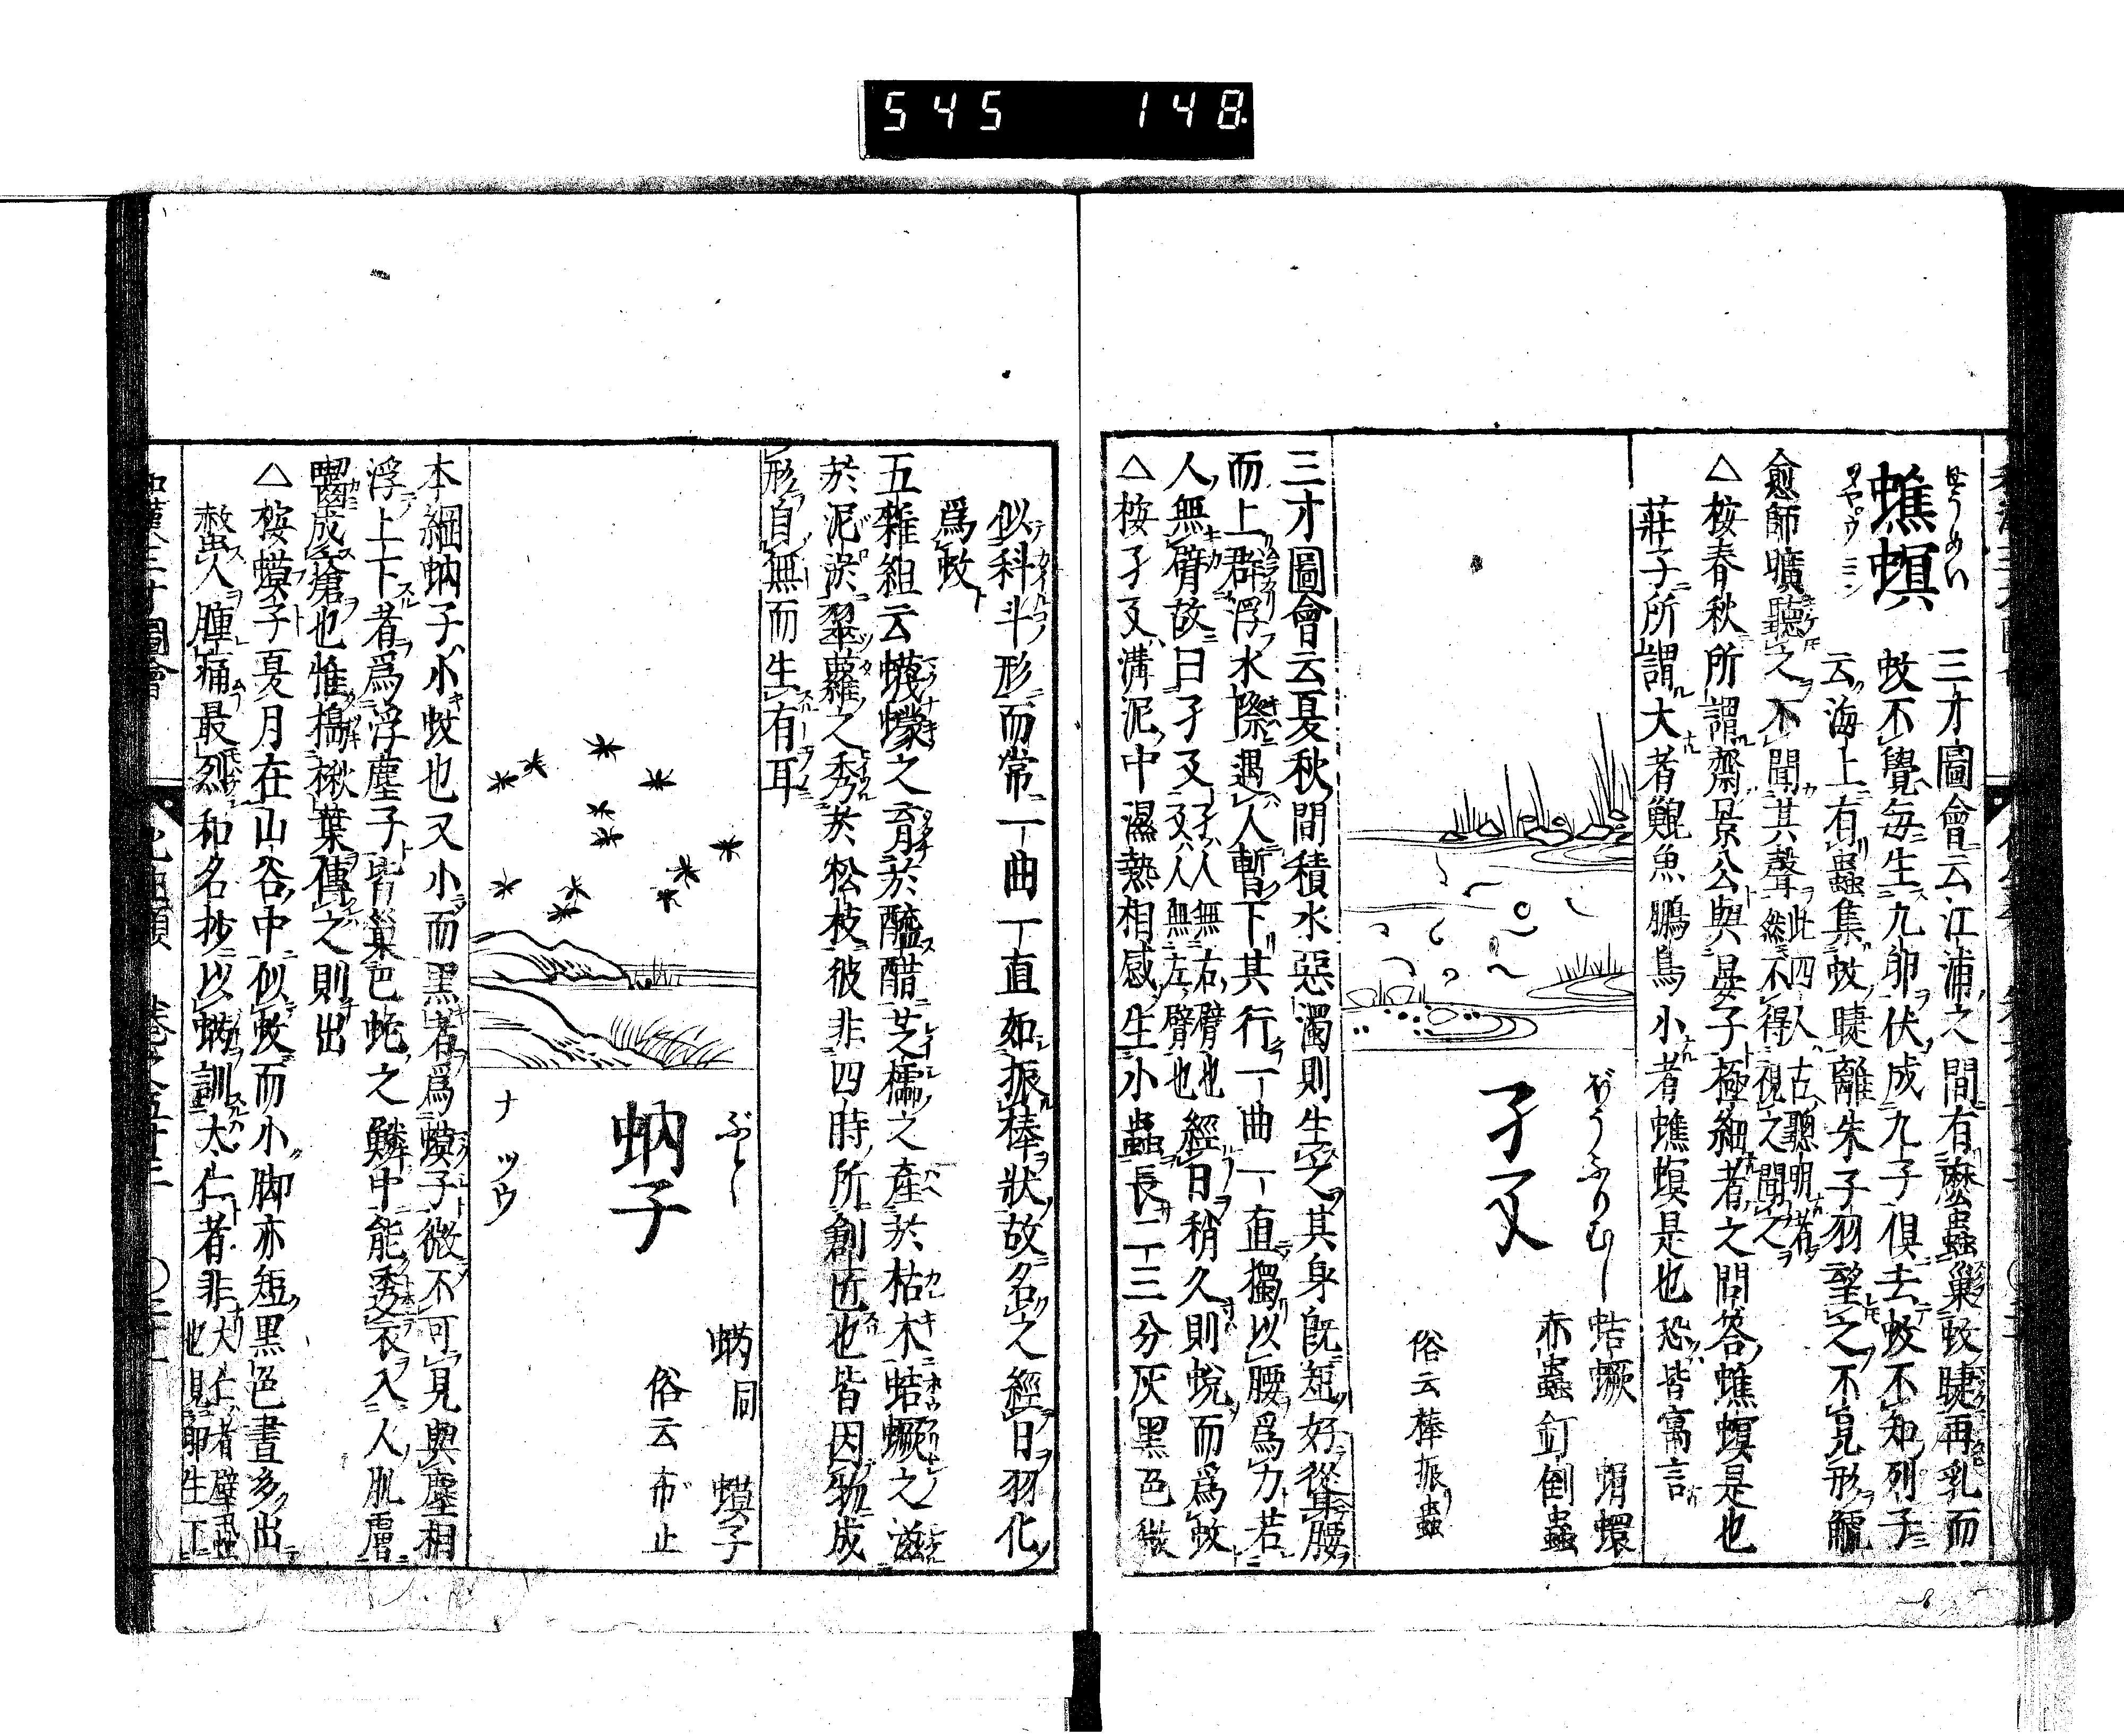 545 148
蟭螟
せうめい
ツヤ゜ウ ミン
三才圖會云江浦之間有麽蟲巢蚊睫再乳而
蚊不覺每生九卵伏成九子俱去蚊不知列子
云海上有蟲集蚊睫離朱子羽望之不見形䚦
愈師曠聽之不聞其聲然此四人古聰明者不得視之聞之
△按春秋所謂齋景公與晏子極細者之問答蟭螟是也
莊子所謂大者鯤魚鵬鳥小者蟭螟是也恐皆寓言
孑孓
ぼうふりむし
蛣蟩 蜎蠉
赤蟲 釘倒蟲
俗云棒振蟲
三才圖會云夏秋間積水惡濁則生之其身旣短好從腰
而上群浮水際遇人暫下其行一曲一直獨以腰爲力若
人無臂故曰孑孓孑人無右臂也孓人無左臂也經日稍久則蛻而爲蚊
△按孑孓溝泥中濕熱相感生小蟲長二三分灰黑色微
似科斗形而常一曲一直如振棒狀故名之經日羽化
爲蚊
五雜組云蠛蠓之育於醯醋芝檽之產於枯木蛣蟩之滋
於泥淤翠蘿之秀於松枝彼非四時所創匠也皆因物成
形自無而生有耳
蚋子
ぶと
ナ ツウ
蜹同 蟆子
俗云布止
本綱蚋子小蚊也又小而黑者爲蟆子微不可見與塵相
浮上下者爲浮塵子皆巢巴蛇之鱗中能透衣入人肌膚
嚙成瘡也惟搗楸葉傅之則出
△按蟆子夏月在山谷中似蚊而小脚亦短黑色晝多出
螫人腫痛最烈和名抄以蜹訓太仁者非也
和漢三才圖會